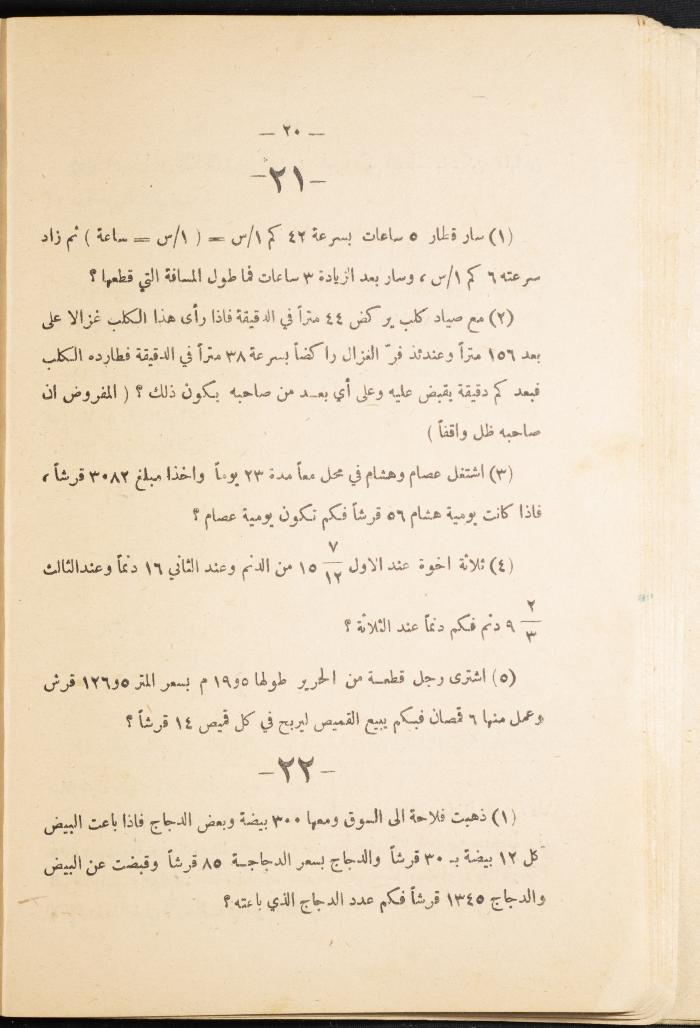 — ٢٠ —
— ٢١ —
(١) سار قطار ٥ ساعات بسرعة ٤٢ كم ١/س = ( ١/س = ساعة ) ثم زاد
سرعته ٦ كم ١/س ، وسار بعد الزيادة ٣ ساعات فما طول المسافة التي قطعها ؟
(٢) مع صياد كلب يركض ٤٤ متراً في الدقيقة فاذا رأى هذا الكلب غزالا على
بعد ١٥٦ متراً وعندئذ فرّ الغزال راكضاً بسرعة ٣٨ متراً في الدقيقة فطارده الكلب
فبعد كم دقيقة يقبض عليه وعلى أي بعد من صاحبه يكون ذلك ؟ ( المفروض ان
صاحبه ظل واقفاً )
(٣) اشتغل عصام وهشام في محل معاً مدة ٢٣ يوماً واخذا مبلغ ٣٠٨٢ قرشاً ،
فاذا كانت يومية هشام ٥٦ قرشاً فكم تكون يومية عصام ؟
(٤) ثلاثة اخوة عند الاول ٧/١٢ ١٥ من الدنم وعند الثاني ١٦ دنماً وعندالثالث
٢/٣ ٩ دنم فكم دنماً عند الثلاثة ؟
(٥) اشترى رجل قطعة من الحرير طولها ١٩٫٥ م بسعر المتر ١٢٦٫٥ قرش
وعمل منها ٦ قمصان فبكم يبيع القميص ليربح في كل قميص ١٤ قرشاً ؟
— ٢٢ —
(١) ذهبت فلاحة الى السوق ومعها ٣٠٠ بيضة وبعض الدجاج فاذا باعت البيض
كل ١٢ بيضة بـ ٣٠ قرشاً والدجاج بسعر الدجاجة ٨٥ قرشاً وقبضت عن البيض
والدجاج ١٣٤٥ قرشاً فكم عدد الدجاج الذي باعته ؟